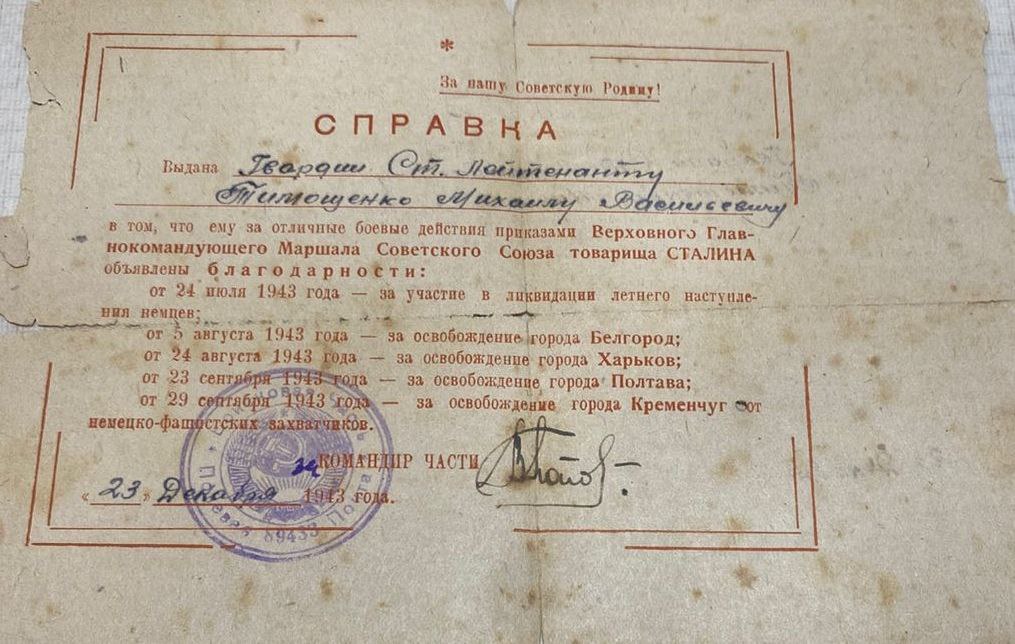 *
За нашу Советскую Родину!
СПРАВКА
Выдана Гвардии Ст. Лейтенанту
Тимощенко Михаилу Васильевичу
в том, что ему за отличные боевые действия приказами Верховного Глав-
нокомандующего Маршала Советского Союза товарища СТАЛИНА
объявлены благодарности:
от 24 июля 1943 года — за участие в ликвидации летнего наступле-
ния немцев;
от 5 августа 1943 года — за освобождение города Белгород;
от 24 августа 1943 года — за освобождение города Харьков;
от 23 сентября 1943 года — за освобождение города Полтава;
от 29 сентября 1943 года — за освобождение города Кременчуг от
немецко-фашистских захватчиков.
КОМАНДИР ЧАСТИ
«23» Декабря 1943 года.
Полевая Почта